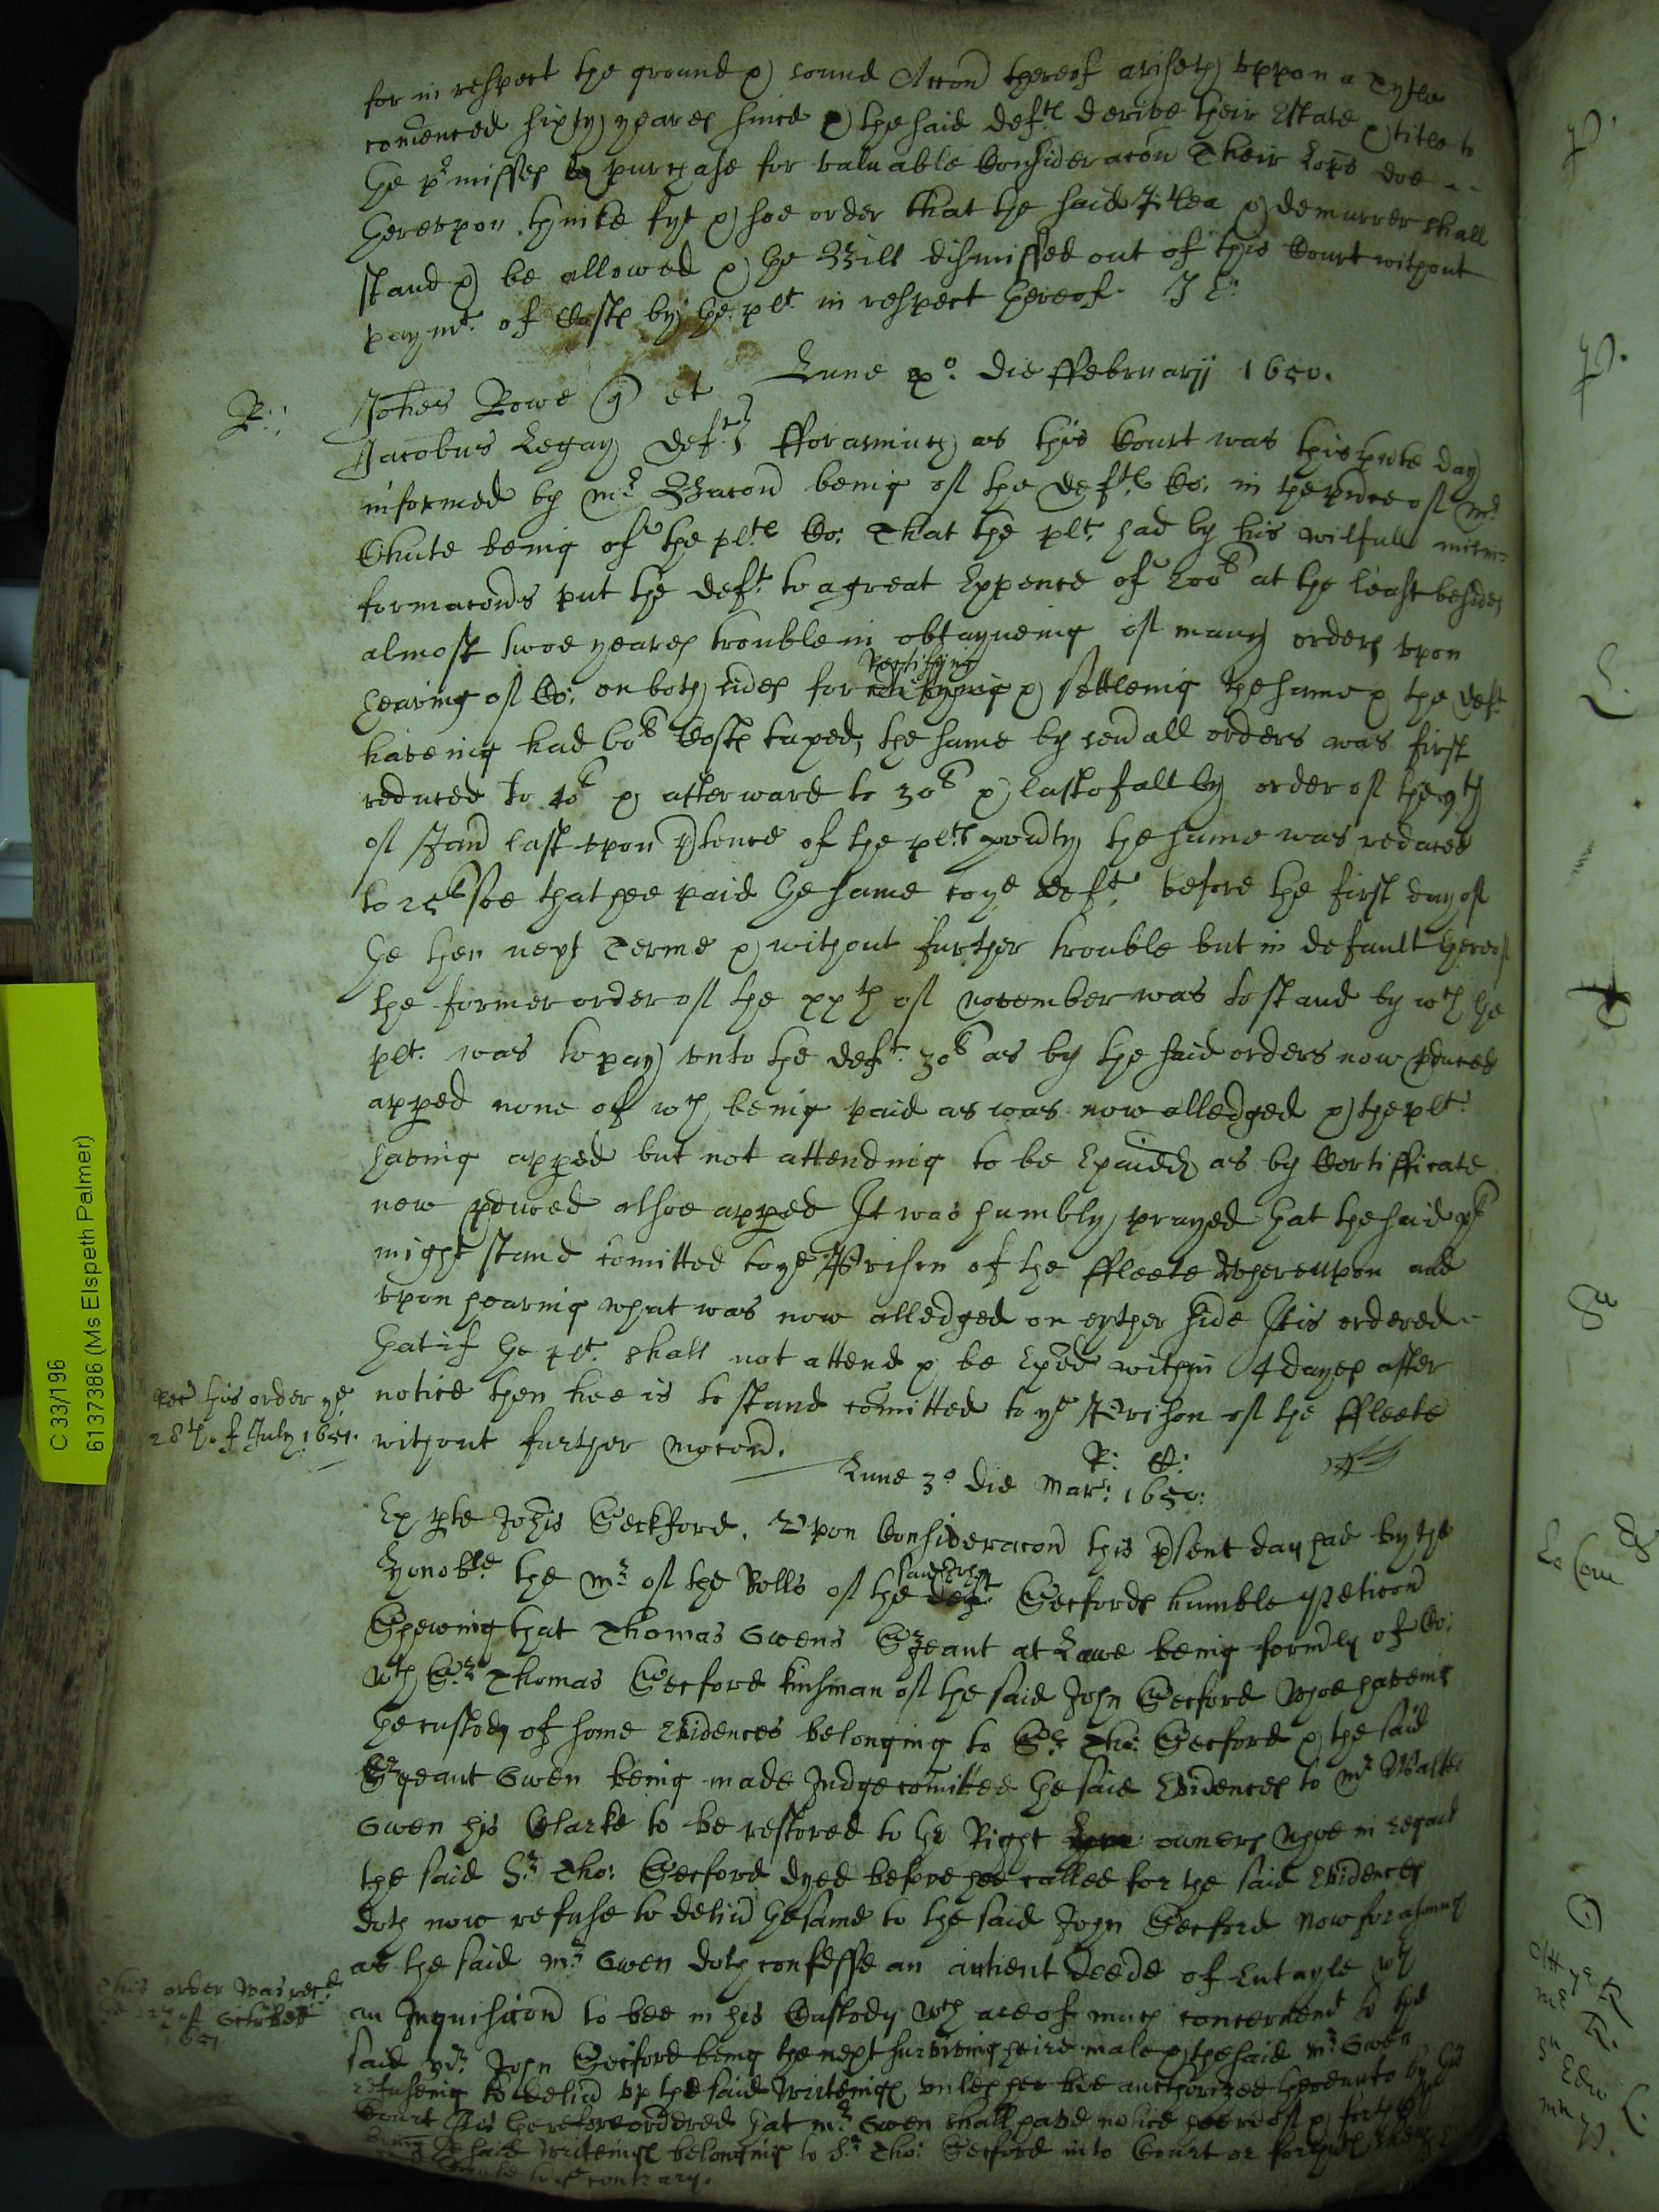 for in respect the ground & cound Accon thereof ariseth uppon a Tytle
comenced sixty yeares since & the said Defts derive their Estate & title to
the p'misses by purchase for valuable Consideracon Their Lopps doe
hereupon thinke fytt & soe order that the said Plea & demurrer shall
stand & be allowed & the Bill dismissed out of this Court without
paymt of Costs by the plt in respect hereof.
Lune xo die ffebruarij 1650.
R:
Johes Rowe qr et
Jacobus Legay Deft fforasmuch as this Court was this pnte day
informed by mr Bacon being of the Defts Co: in the pnce of mr
Chute being of the plts Co: That the plt had by his wilfull misin=
formacons put the Deft to a great Expence of 200l at the least besides
almost twoe yeares trouble in obtayneing of many orders upon
hearing of Co: on both sides for
Rectifying
& settleing the same & the deft
haveing had 60l Costs taxed, the same by sevall orders was first
reduced to 40l & afterward to 30l & last of all by order of the 9th
of Jan last upon p'tence of the plts povty the same was reduced
to 25l soe that hee paid the same to ye Deft before the first day of
the then next Terme & without further trouble but in default thereof
the former order of the xxth of November was to stand by wch the
plt. was to pay unto the Deft. 30l as by the said orders now pduced
apped none of wch being paid as was now alledged & the plt.
having apped but not attending to be Exaied as by Certifficate
now pduced alsoe apped It was humbly prayed that the said plt
might stand comitted to ye Prison of the ffleete Whereupon and
upon hearing what was now alledged on eyther side It is ordered
that if the plt. shall not attend & be Exed within 4 dayes after
notice then hee is to stand comitted to ye Prison of the ffleete
without further mocon.
rec his order ye
28th of July 1651.
R: C:
Lune 3o die Mar: 1650:
Ex pte Johis Seckford. Upon Consideracon this p'sent day had by the
Honoble the mr of the Rolls of the
said John
Secfords humble Peticon
Shewing that Thomas Owens Sgeant at Lawe being formly of Co:
wth Sr Thomas Secford kinsman of the said John Secford Whoe haveing
the custody of some Evidences belonging to Sr Tho: Secford & the said
Sgeant Owen being made Judge comitted the said Evidences to mr Walter
Owen his Clarke to be restored to the Right owners Whoe in regard
the said Sr Tho: Secford dyed before hee called for the said Evidences
doth now refuse to delivr the same to the said John Secford Now forasmuch
as the said mr Owen doth confesse an antient deede of Entayle wth
an Inquisicon to bee in his Custody wch are of much concernemt to the
said John Secford being the next surviving heire male & the said mr Owen
refuseing to delivr up the said Writeings unles hee bee authorized thereunto by this
Court It is therefore ordered that mr Owen shall have notice hereof & forthwth
bring the said Writeings belonging to Sr Tho: Secford into Court or forthwth shew
to ye contrary.
This order was recd
the of October
1651
C 33/196
61137386 (Ms Elspeth Palmer)